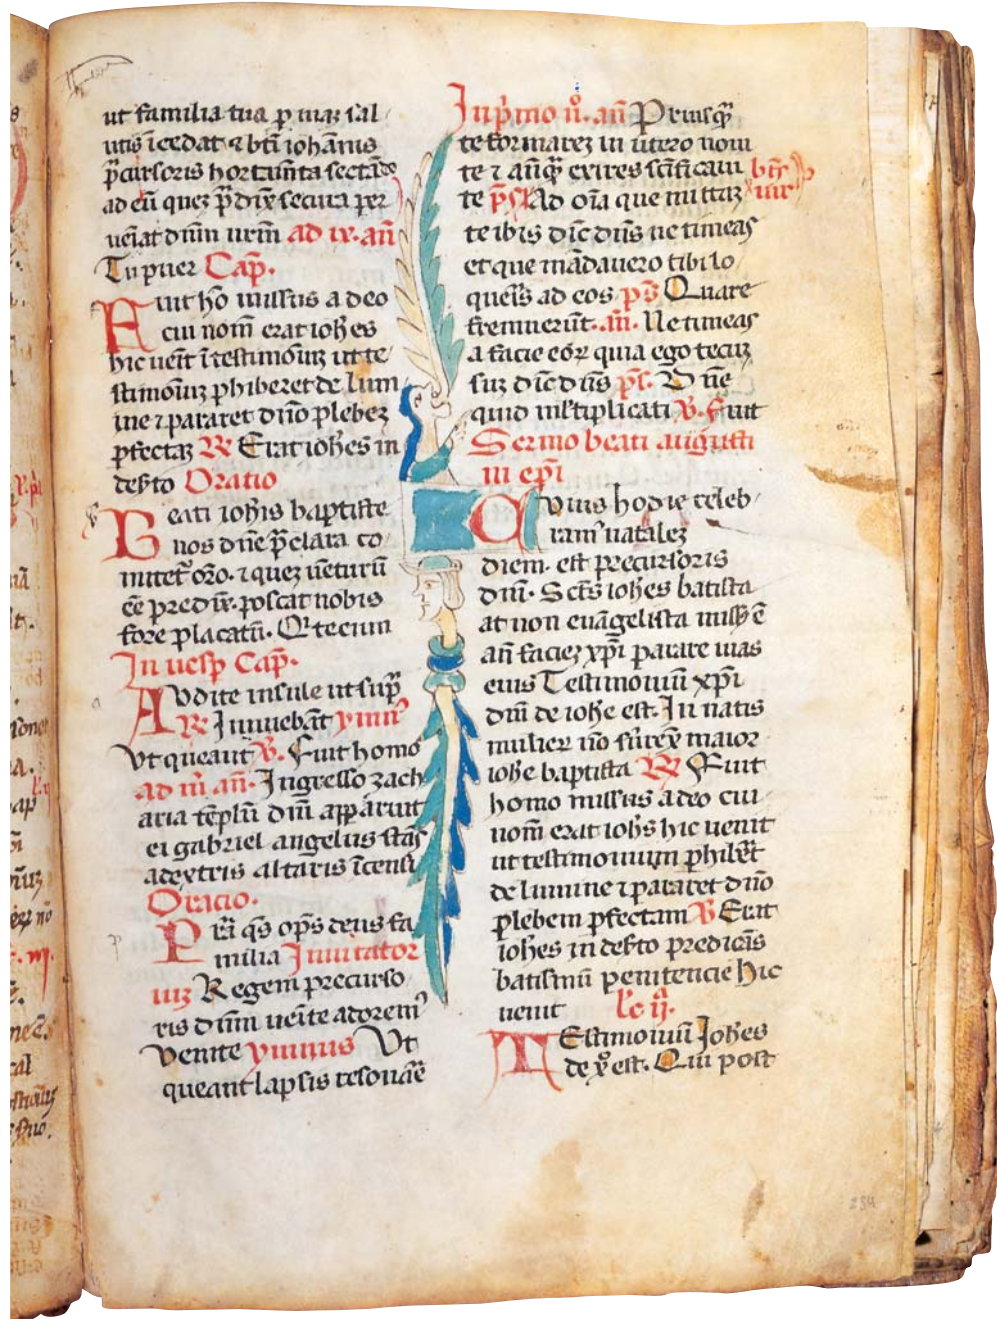 ut familia tua p uiaꝫ sal
utis īcedat ⁊ bt̄i ioh̄anis
p̄cursoris hortam̄ta sectādo
ad eū queꝫ p̄dix̄ secura per
ueīat dn̄m nr̄m ad ix. an̄
Tu puer Cap̄.
Fuit ho missus a deo
cui nom̄ erat ioh̄es
hic uen̄it ī testimōiuꝫ ut te
stimōiuꝫ phiberet de lum
ine ⁊ pararet dn̄o plebeꝫ
pfectaꝫ ℟ Erat ioh̄es in
des̄to Oratio
Beati ioh̄is baptiste
nos dn̄e p̄clara co
mitet᷑ or̄o. ⁊ queꝫ uēturū
ēē predix̄. poscat nobis
fore placatū. Q tecum
In uesp̄ Cap̄.
Audite insule ut sup̄
℟ Innuebāt ymn᷒
Ut queant ℣. Fuit homo
ad m̄ an̄. Ingresso zach
aria tēplū dn̄i apparuit
ei gabriel angelus stās
a dextris altaris īcensi
Oracio.
Pr̄a q̄s op̄s deus fa
milia Inuitator
iuꝫ Regem precurso
ris dn̄m uenite adorem᷒
Venite ymnus Ut
queant lapsis resonāē
In p̄mo n̊. an̄ Priusq̄
te formareꝫ in utero noui
te ⁊ an̄q̄ exires sc̄ificaui
te p̄s. Ad oīa que mittaꝫ
bt̄s
uir
te ibis dic̄ dn̄s ne timeas
et que mādauero tibi lo
queris ad eos p̄s Quare
fremuerūt. an̄. Ne timeas
a facie eoꝝ quia ego tecuꝫ
suꝫ dic̄ dn̄s p̄s. Dn̄e
quid ml̄tiplicati ℣. Fuit
Sermo beati augusti
ni ep̄i
Quius hodie celeb
ram᷒ nataleꝫ
diem. est precursoris
dn̄i. Sc̄s ioh̄es batista
at non euāgelista miss᷒ ē
an̄ facieꝫ xp̄i parare uias
eius Testimoniū xp̄i
dn̄i de ioh̄e est. In natis
mulieꝝ nō surex̄ maior
ioh̄e baptista ℟ Fuit
homo missus a deo cui
nom̄ erat ioh̄s hic uenit
ut testimonium phib̄et
de lumine ⁊ pararet dn̄o
plebem pfectam ℣ Erat
ioh̄es in des̄to predicās
batismū penitencie Hic
uenit lc̄ ij.
Testimoniū Joh̄es
de x̄o est. Qui post
234